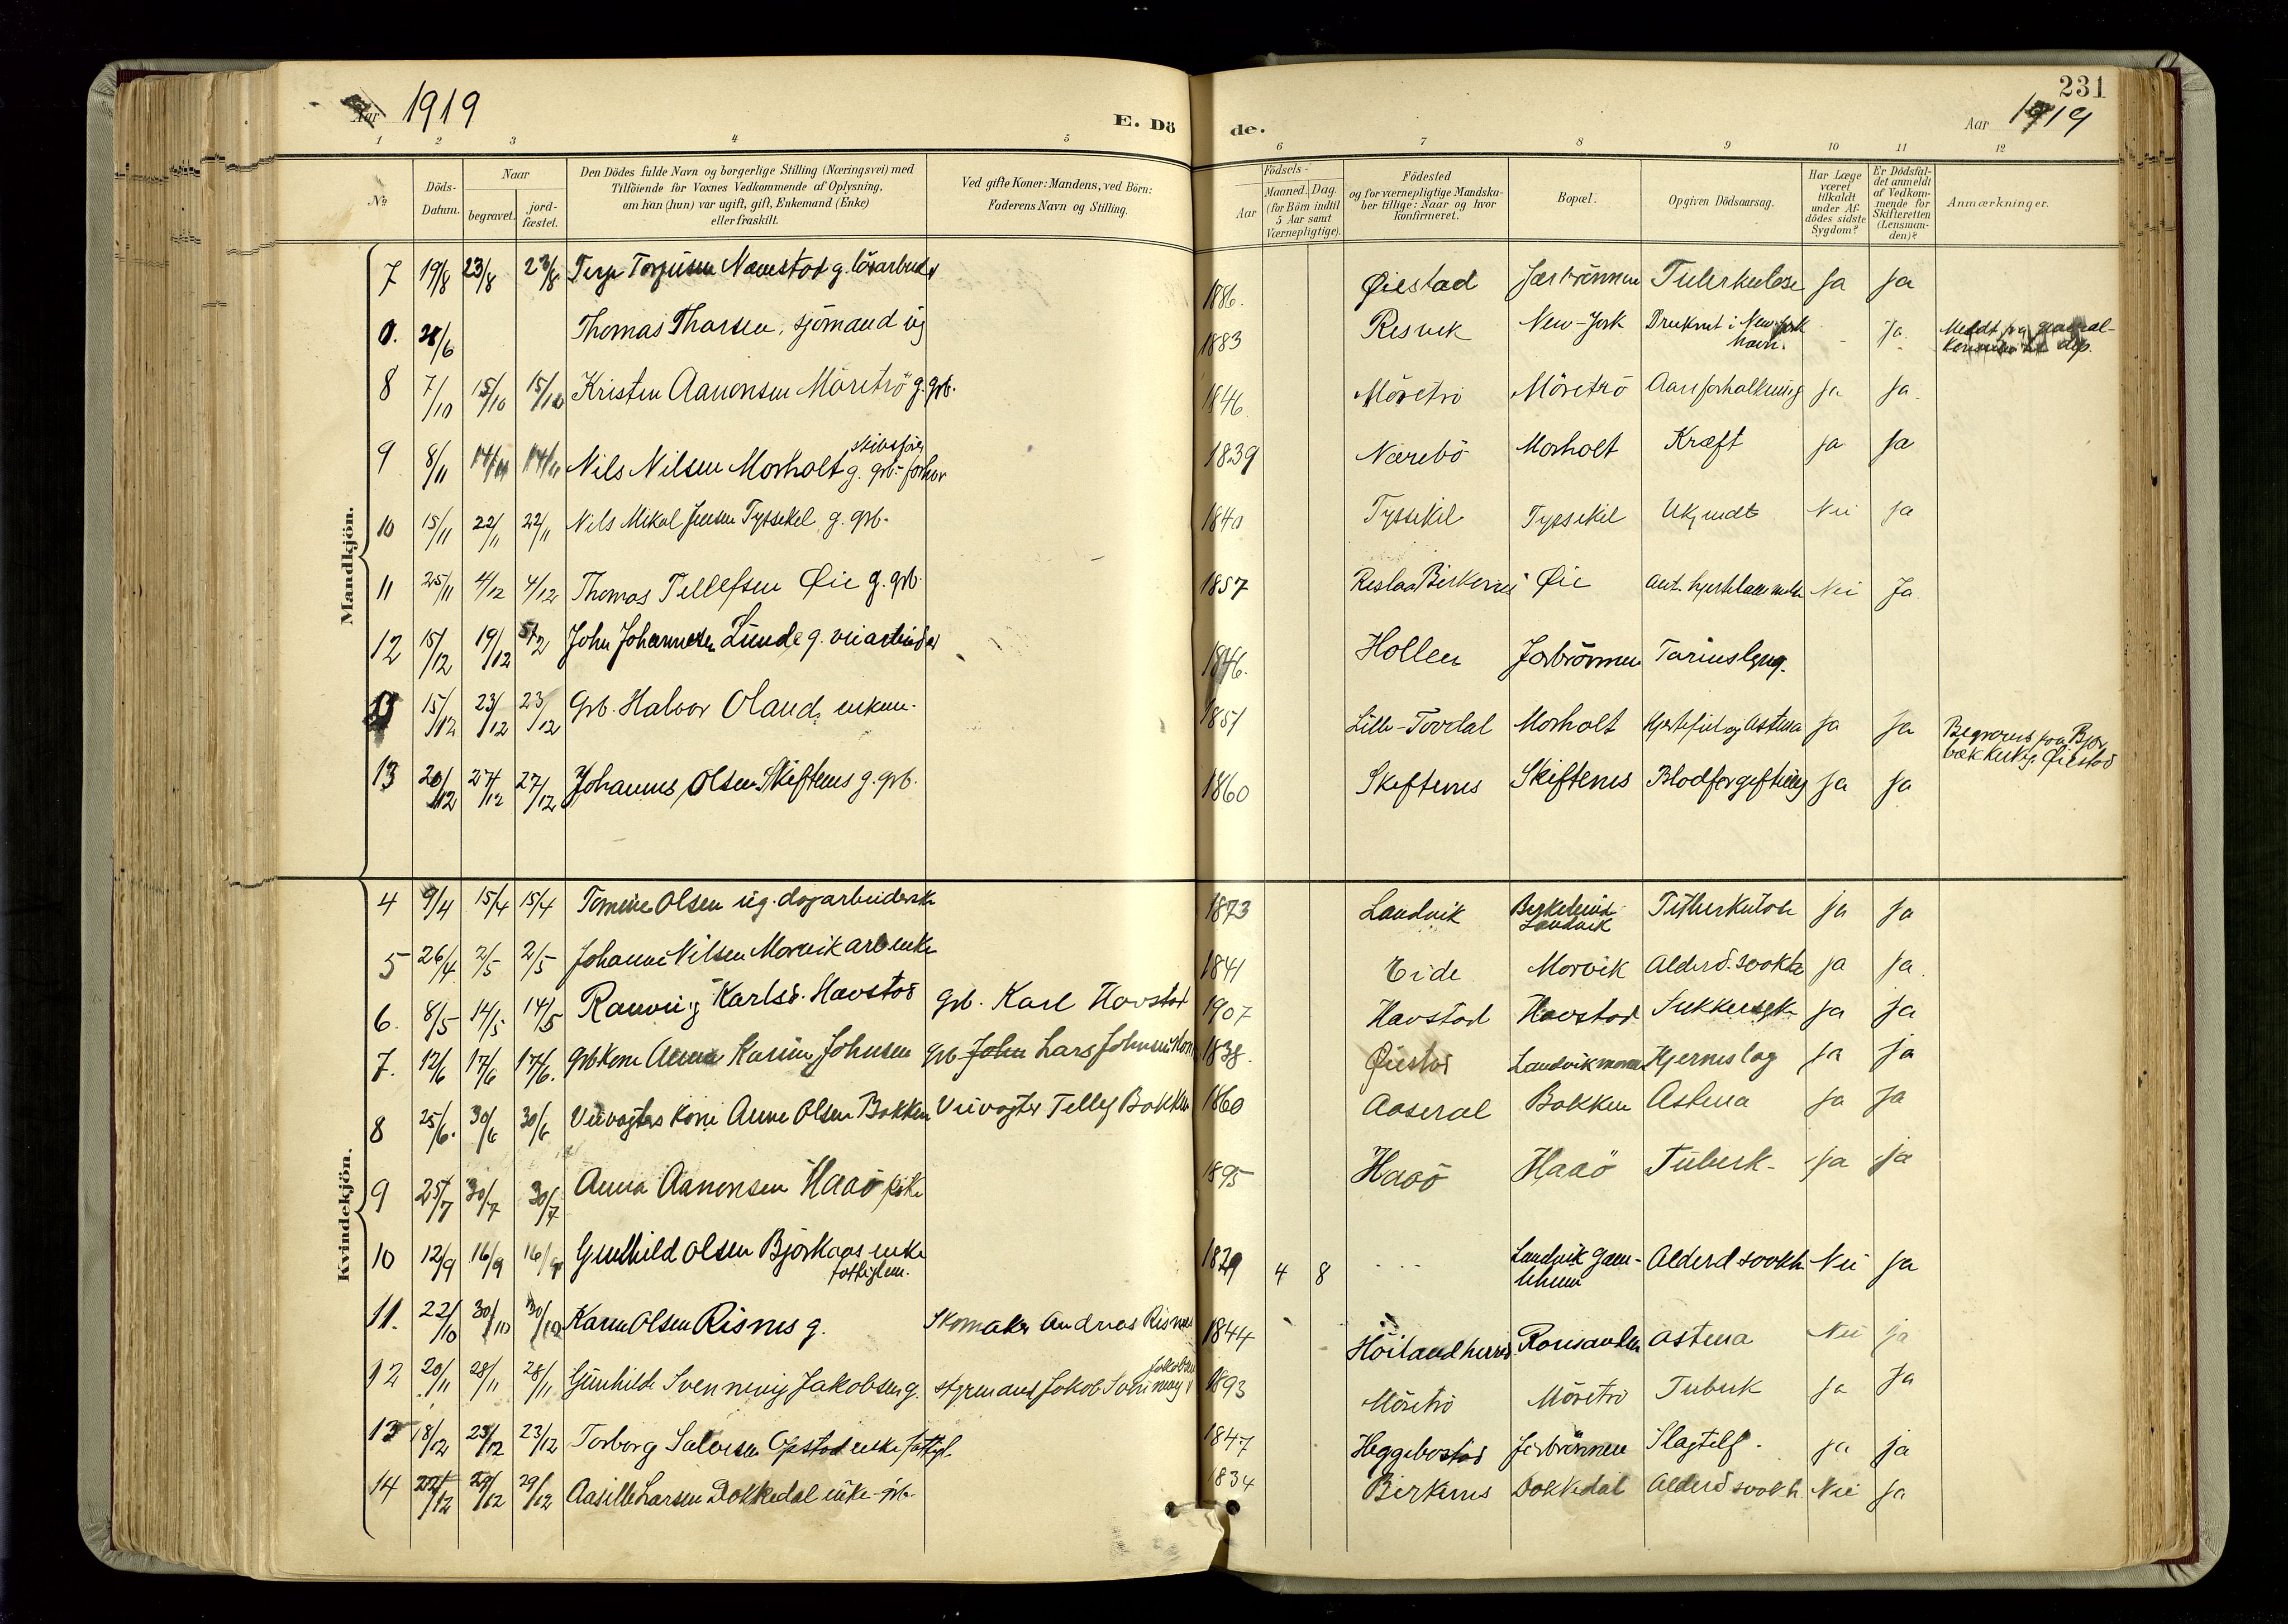 Aar 1919
E. Dö
de.
231
Aar 1919
1 2 3 4 5 6 7 8 9 10 11 12
№
Döds-
Datum.
Naar
begravet.
jord-
fæstet.
Den Dödes fulde Navn og borgerlige Stilling (Næringsvei) med
Tilföiende for Voxnes Vedkommende af Oplysning,
om han (hun) var ugift, gift, Enkemand (Enke)
eller fraskilt.
Ved gifte Koner: Mandens, ved Börn:
Faderens Navn og Stilling.
Födsels-
Aar
Maaned. Dag.
(for Börn indtil
5 Aar samt
Værnepligtige).
Födested
og for værnepligtige Mandska-
ber tillige: Naar og hvor
konfirmeret.
Bopæl.
Opgiven Dödsaarsag.
Har Læge
været
tilkaldt
under Af-
dödes sidste
Sygdom?
Er Dödsfal-
det anmeldt
af Vedkom-
mende for
Skifteretten
(Lensman-
den)?
Anmærkninger.
Mandkjön.
7 19/8 23/8 23/8 Terje Torjusen g. 1886. Øiestad Tuberkulose Ja Ja
0. /6 Thomas Tharsen, sjömand ug 1883 Resvik New-York Druknet i New-York Ja
havn.
8 7/10 15/10 15/10 Kristen Aanonsen Möretrö g. grb. 1846. Möretrö Möretrö Aareforkalkning Ja Ja.
9 8/11 14/11 14/11 Nils Nilsen Morholt g. grb. 1839 Nærebö Morholt Kræft Ja Ja
10 15/11 22/11 22/11 Nils Mikal Jensen Tyssekil g. grb. 1840 Tyssekil Tyssekil Ukjendt Nei Ja
11 25/11 4/12 4/12 Thomas Tellefsen Øie g. grb. 1857 Birkenes Øie Nei Ja
12 15/12 19/12 John Johannesen Lunde g. veiarbeider 1846. Hollen Tarmslyng.
15/12 23/12 23/12 Grb. Halvor Oland, enkem. 1851 Lille-Tovdal Morholt Hjertefeil og Astma Ja Ja Begraves paa
Øiestad
13 20/12 27/12 27/12 Johannes Olsen Skiftenes g. grb. 1860 Skiftenes Skiftenes Blodforgiftning Ja Ja
Kvindekjön.
4 9/4 15/4 15/4 Tomine Olsen ug. dagarbeiderske 1873 Landvik Ja Ja
Landvik
5 26/4 2/5 2/5 Johanne Nilsen Morvik enke 1841 Eide Morvik Alderd. svakh. Ja Ja.
6. 8/5 14/5 14/5 Ranveig Karlsd. Havstad Grb. Karl Havstad 1907 Havstad Havstad Sukkersyke Ja Ja
7. 12/6 17/6 17/6. Grb Kone Anna Karine Johnsen Grb. John Lars Johnsen 1838. Øiestad Hjerneslag Ja Ja
8 25/6. 30/6 30/6 Veivogters Kone Anne Olsen Bakken Veivogter Tellef Bakken 1860 Aaseral Bakken Astma Ja Ja
9 25/7 30/7 30/7 Anna Aanonsen Haaö pike 1895 Haaö Haaö Tuberk. Ja Ja
10 12/9 16/9 16/9 Gunhild Olsen Björkaas enke 1829 4 8 Landvik Gam- Alderd svakh. Nei Ja
fattiglem. lehjem
11. 22/10 30/10 30/10 Karen Olsen Risnes g. Skomaker Andreas Risnes 1844 Astma Nei Ja
12 20/11 28/11 28/11 Gunhilde Svenning Jakobsen g. styrmand Jakob Svenning 1893 Möretrö Möretrö Tuberk Ja Ja
Jakobsen
13 18/12 23/12 23/12 Torborg Salvesen Opstad enke fattigl. 1847 Heggebostad Slagtilf. Ja Ja
14 29/12 29/12 Aasille Larsen Dokkedal enke grb. 1834 Birkenes Dokkedal Alderd svakh. Nei Ja